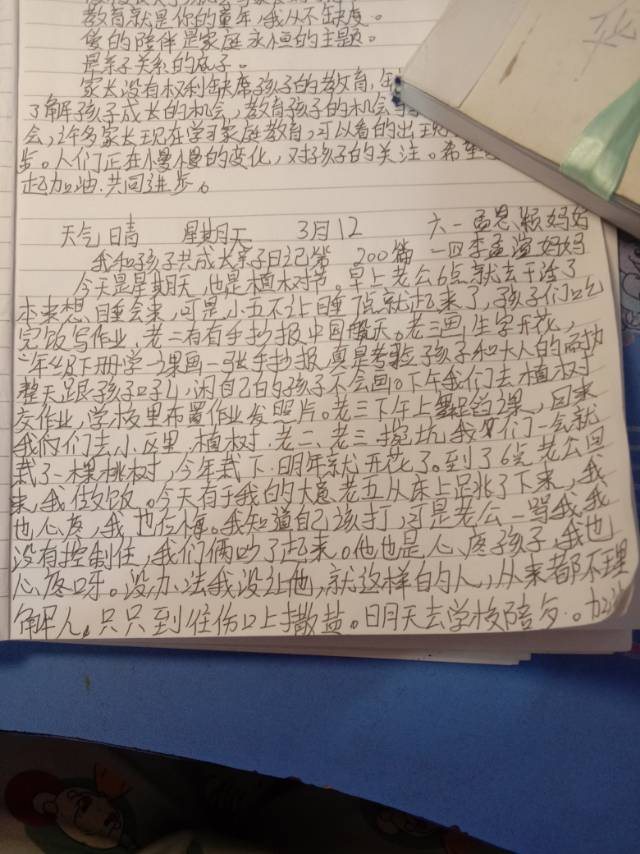 教育就是你的童年，我从不缺席。
爱的陪伴是家庭永恒的主题。
是亲子关系的瓜子。
家长没有权利缺席孩子的教育，
了解孩子成长的机会，教育孩子的机会
会，许多家长现在学习家庭教育，可以看的出
步。人们正在慢慢的变化，对孩子的关注。希望
起加油，共同进步。
天气晴 星期天 3月12 六一孟思颖妈妈
我和孩子共成长亲子日记第 200篇 一四李孟渲妈妈
今天是星期天，也是植树节。早上老公6点就去干活了
本来想睡会来，可是小五不让睡7点就起来了，孩子们吃
完饭写作业，老二有有手抄报中国航天。老三画，生字开花，
一年级下册学一课画一张手抄报，真是考验孩子和大人的
整天跟孩子，闲自己的孩子不会画。下午我们去植树
交作业，学校里布置作业发照片。老三下午上舞蹈课，回来
我们去小区里，植树，老二、老三挖坑，我们一会就
栽了一棵桃树，今年栽下，明年就开花了。到了6点老公回
来，我做饭。今天有于我的大意老五从床上跳了下来，我
也心疼，我也后悔。我知道自己该打，可是老公一骂我，我
没有控制住，我们俩吵了起来。他也是心疼孩子，我也
心疼呀。没办法我没让他，就这样的人，从来都不理
解人。只只到住伤口上撒盐。明天去学校陪